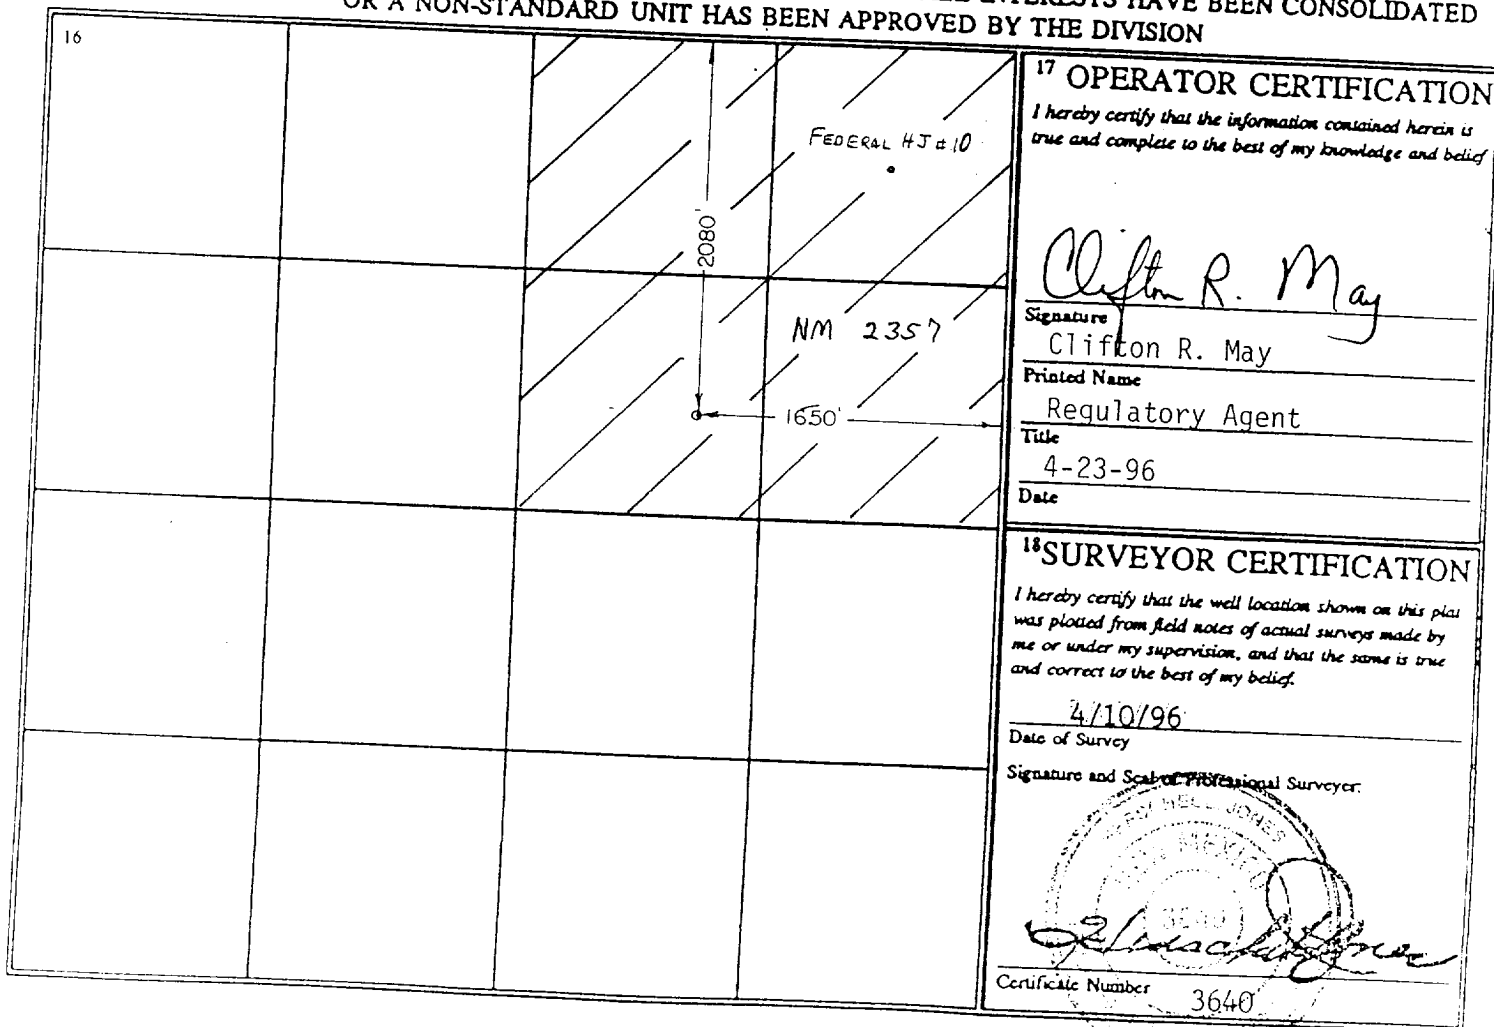 INTERESTS HAVE BEEN CONSOLIDATED
OR A NON-STANDARD UNIT HAS BEEN APPROVED BY THE DIVISION
16
FEDERAL HJ #10
2080'
NM 2357
1650'
17 OPERATOR CERTIFICATION
I hereby certify that the information contained herein is
true and complete to the best of my knowledge and belief
Clifton R. May
Signature
Clifton R. May
Printed Name
Regulatory Agent
Title
4-23-96
Date
18 SURVEYOR CERTIFICATION
I hereby certify that the well location shown on this plat
was plotted from field notes of actual surveys made by
me or under my supervision, and that the same is true
and correct to the best of my belief.
4/10/96
Date of Survey
Signature and Seal of Professional Surveyer:
JONES
NEW MEXICO
3640
Certificate Number 3640